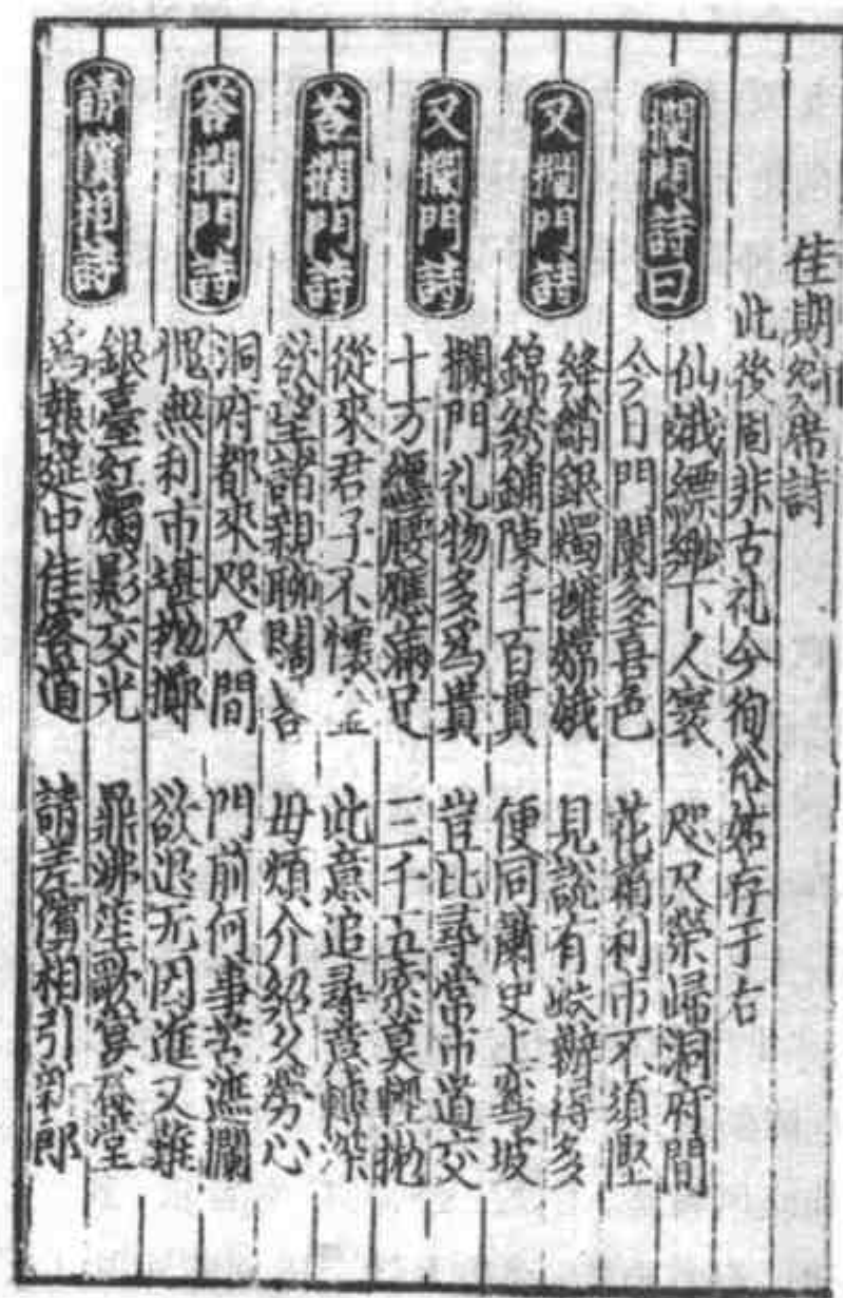 佳期 席詩
此後固非古礼今徇俗姑存于右
攔門詩曰
仙娥縹緲下人寰 咫尺榮歸洞府間
今日門闌多喜色 花箱利市不須慳
又攔門詩
絳綃銀燭擁嫦娥 見說有 辦得多
錦綉鋪陳千百貫 便同蕭史上鸞坡
又攔門詩
攔門礼物多為貴 豈比尋常市道交
十万纏腰應滿足 三千五索莫輕拋
荅攔門詩
從來君子不懷金 此意追尋意轉深
欲望諸親聊闊 毋煩介紹久勞心
荅攔門詩
洞府都來咫尺間 門前何事苦遮攔
愧無利市堪拋擲 欲退无因進又難
請儐相詩
銀臺紅燭影交光 鼎沸笙歌 堂
為報筵中佳客道 請差儐相引新郎